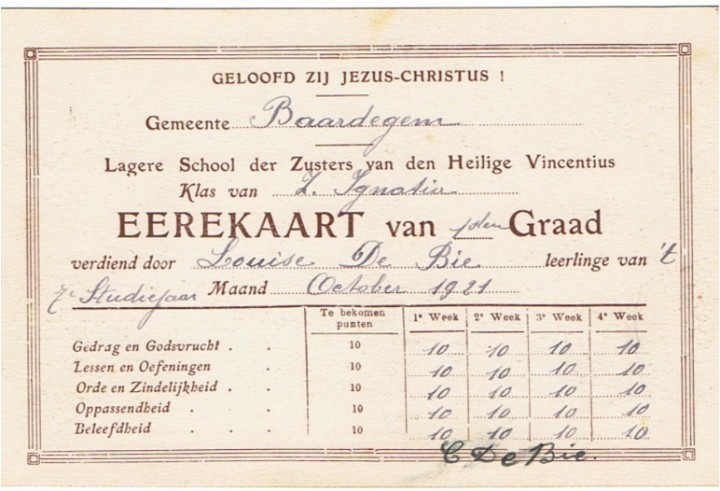 GELOOFD ZIJ JEZUS-CHRISTUS !
Gemeente Baardegem
Lagere School der Zusters van den Heilige Vincentius
Klas van Z. Ignatia
EEREKAART van 1den Graad
verdiend door Louise De Bie leerlinge van 't
7e Studiejaar Maand October 1921
Te bekomen punten 1e Week 2e Week 3e Week 4e Week
Gedrag en Godsvrucht . . 10 10 10 10 10
Lessen en Oefeningen . 10 10 10 10 10
Orde en Zindelijkheid . . 10 10 10 10 10
Oppassendheid . . . 10 10 10 10 10
Beleefdheid . . . 10 10 10 10 10
C De Bie.